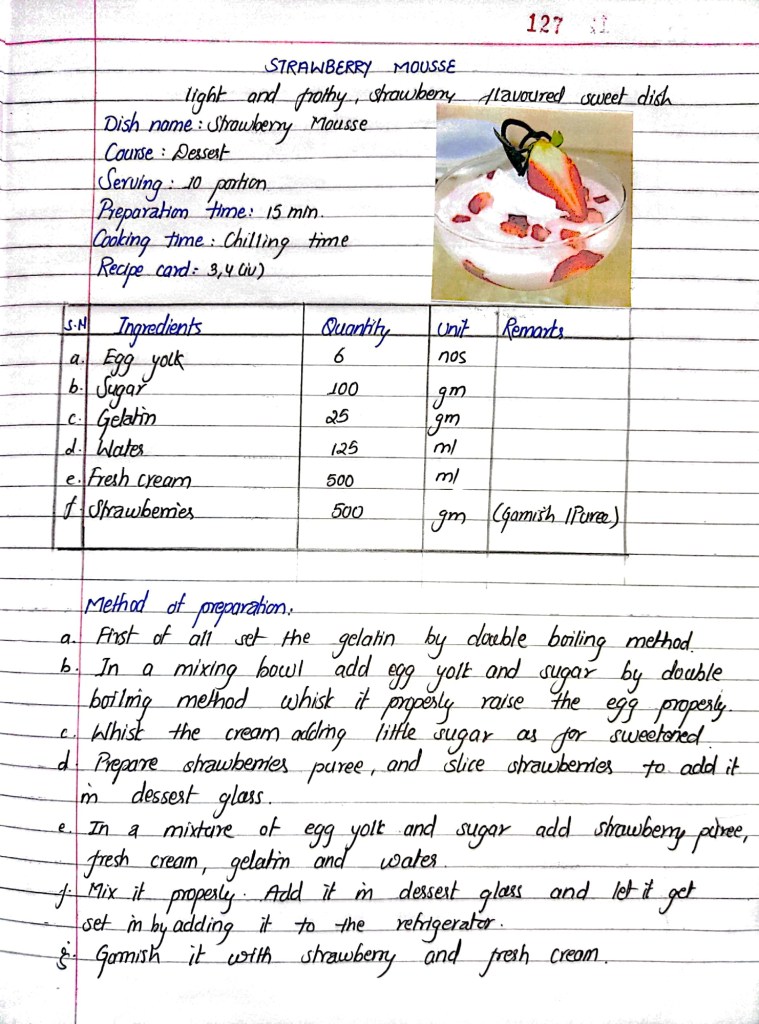 127
STRAWBERRY MOUSSE
light and frothy, strawberry flavoured sweet dish
Dish name : Strawberry Mousse
Course : Dessert
Serving : 10 portion
Preparation time : 15 min.
Cooking time : Chilling time
Recipe card : 3,4 (iv)
S.N Ingredients Quantity Unit Remarks
a. Egg yolk 6 nos
b. Sugar 100 gm
c. Gelatin 25 gm
d. Water 125 ml
e. Fresh cream 500 ml
f. Strawberries 500 gm (Garnish / Puree)
Method of preparation:
a. First of all set the gelatin by double boiling method.
b. In a mixing bowl add egg yolk and sugar by double
boiling method whisk it properly raise the egg properly.
c. Whisk the cream adding little sugar as for sweetoned.
d. Prepare strawberries puree, and slice strawberries to add it
in dessert glass.
e. In a mixture of egg yolk and sugar add strawberry puree,
fresh cream, gelatin and water.
f. Mix it properly. Add it in dessert glass and let it get
set in by adding it to the refrigerator.
g. Garnish it with strawberry and fresh cream.